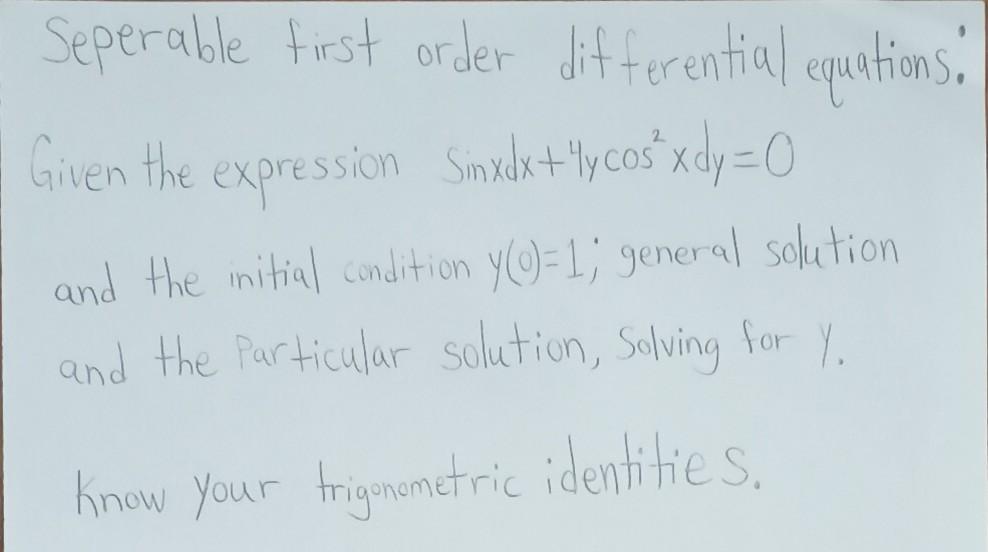 Seperable first order differential equations:
Given the expression Sinxdx+4ycos²xdy=0
and the initial condition y(0)=1; general solution
and the Particular solution, Solving for y.
Know your trigonometric identities.